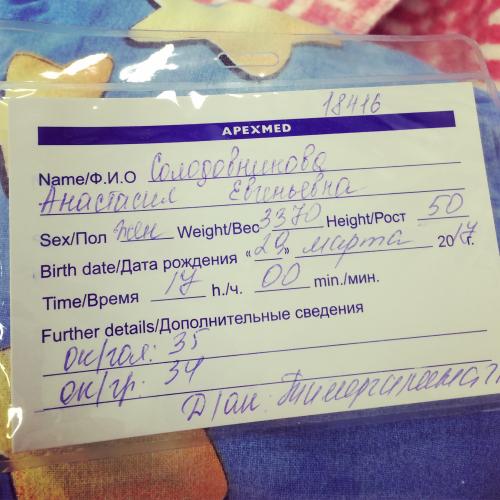 18416
APEXMED
Name/Ф.И.О Солодовникова
Анастасия Евгеньевна
Sex/Пол жен Weight/Вес 3370 Height/Рост 50
Birth date/Дата рождения «29» марта 2017г.
Time/Время 17 h./ч. 00 min./мин.
Further details/Дополнительные сведения
ок/гол: 35
ок/гр: 34